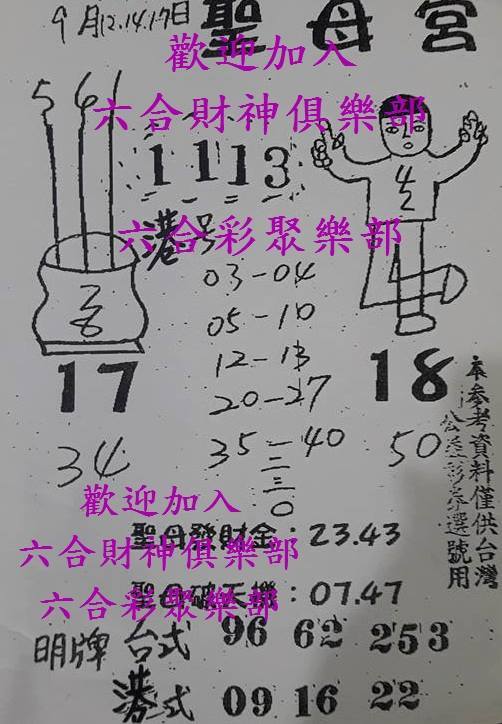 9月12.14.17日
聖母宮
歡迎加入
六合財神俱樂部
5 6 1
1 1 1 3
六合彩聚樂部
港号
03-04
05-10
12-13
20-27
35-40
三三〇
17
34
18
50
本參考資料僅供台灣
公益彩券選號用
歡迎加入
聖母發財金：23.43
六合財神俱樂部
聖母破天機：07.47
六合彩聚樂部
明牌
台式 96 62 253
港式 09 16 22